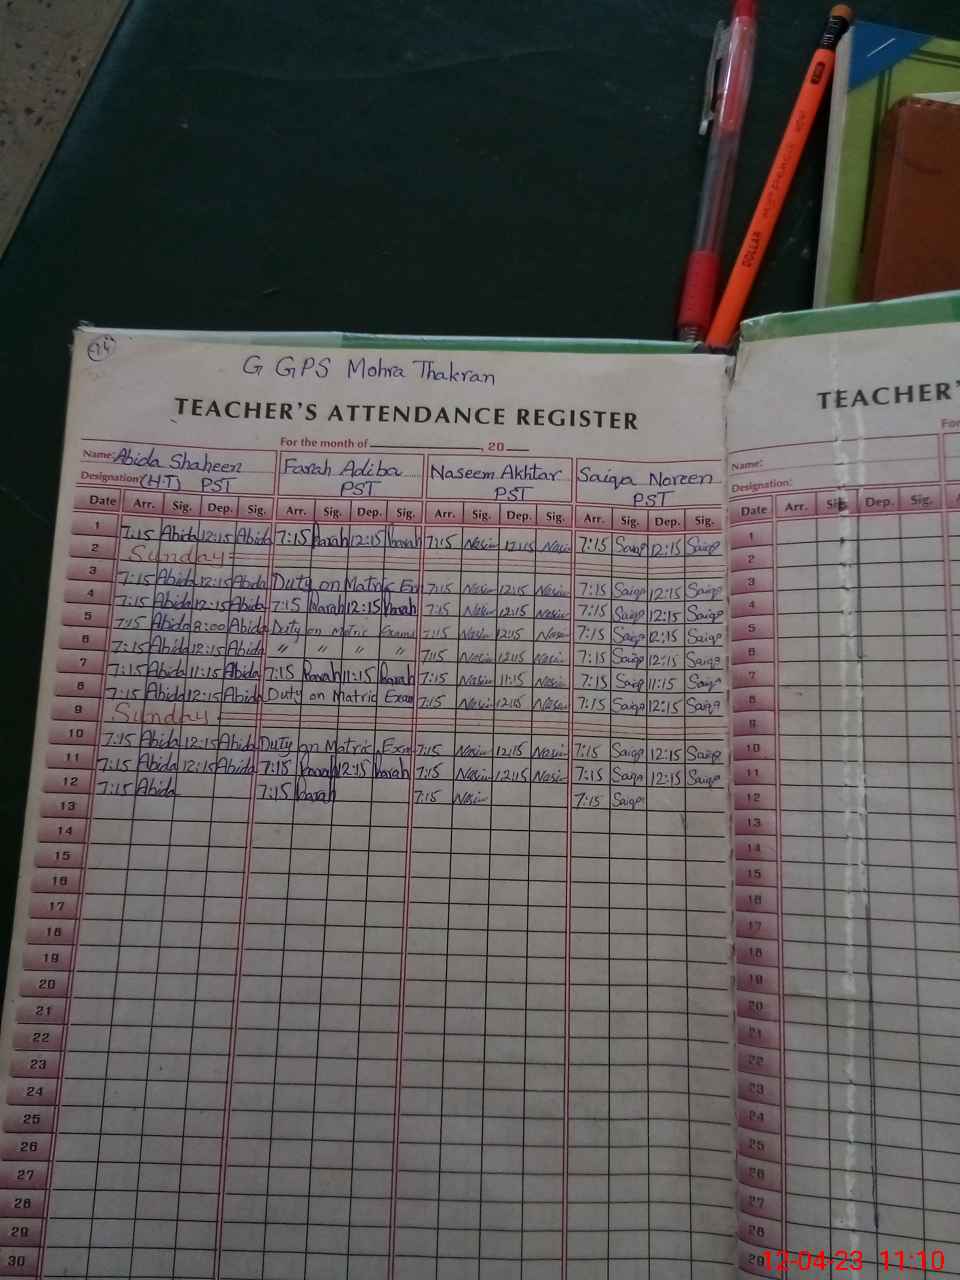 G GPS Mohra Thakran
TEACHER'S ATTENDANCE REGISTER
For the month of , 20
Name: Abida Shaheen Farah Adiba Naseem Akhtar Saiqa Noreen
Designation: (H.T) PST PST PST PST
Date Arr. Sig. Dep. Sig. Arr. Sig. Dep. Sig. Arr. Sig. Dep. Sig. Arr. Sig. Dep. Sig.
1 7:15 Abida 12:15 Abida 7:15 Farah 12:15 Farah 7:15 Nasim 12:15 Nasim 7:15 Saiqa 12:15 Saiqa
2 Sunday
3 7:15 Abida 12:15 Abida Duty on Matric Ex 7:15 Nasim 12:15 Nasim 7:15 Saiqa 12:15 Saiqa
4 7:15 Abida 12:15 Abida 7:15 Farah 12:15 Farah 7:15 Nasim 12:15 Nasim 7:15 Saiqa 12:15 Saiqa
5 7:15 Abida 8:00 Abida Duty on Matric Exams 7:15 Nasim 12:15 Nasim 7:15 Saiqa 12:15 Saiqa
6 7:15 Abida 12:15 Abida " " " " 7:15 Nasim 12:15 Nasim 7:15 Saiqa 12:15 Saiqa
7 7:15 Abida 11:15 Abida 7:15 Farah 11:15 Farah 7:15 Nasim 11:15 Nasim 7:15 Saiqa 11:15 Saiqa
8 7:15 Abida 12:15 Abida Duty on Matric Exam 7:15 Nasim 12:15 Nasim 7:15 Saiqa 12:15 Saiqa
9 Sunday
10 7:15 Abida 12:15 Abida Duty on Matric Exa 7:15 Nasim 12:15 Nasim 7:15 Saiqa 12:15 Saiqa
11 7:15 Abida 12:15 Abida 7:15 Farah 12:15 Farah 7:15 Nasim 12:15 Nasim 7:15 Saiqa 12:15 Saiqa
12 7:15 Abida 7:15 Farah 7:15 Nasim 7:15 Saiqa
13
14
15
16
17
18
19
20
21
22
23
24
25
26
27
28
29
30
TEACHER'
For
Name:
Designation:
Date Arr. Sig. Dep. Sig.
1
2
3
4
5
6
7
8
9
10
11
12
13
14
15
16
17
18
19
20
21
22
23
24
25
26
27
28
29
DOLLAR
12-04-23 11:10